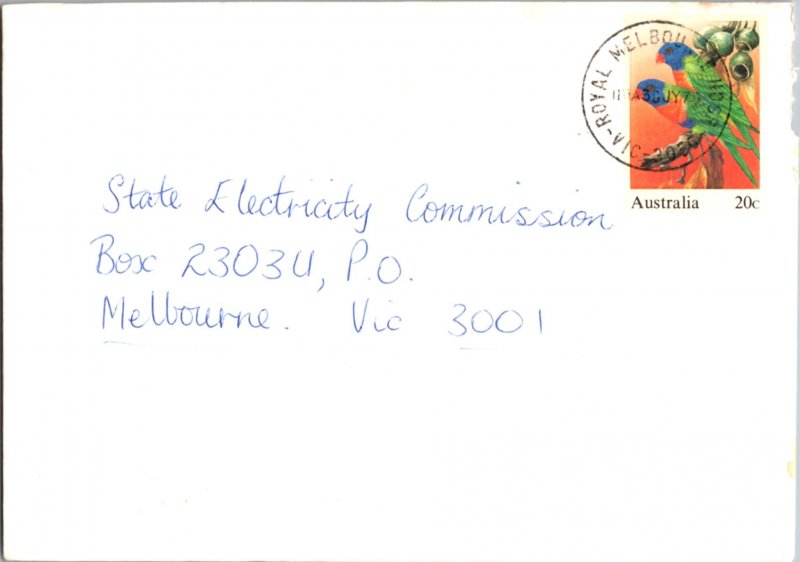 ROYAL MELBOU
Australia 20c
State Electricity Commission
Box 2303U, P.O.
Melbourne. Vic 3001